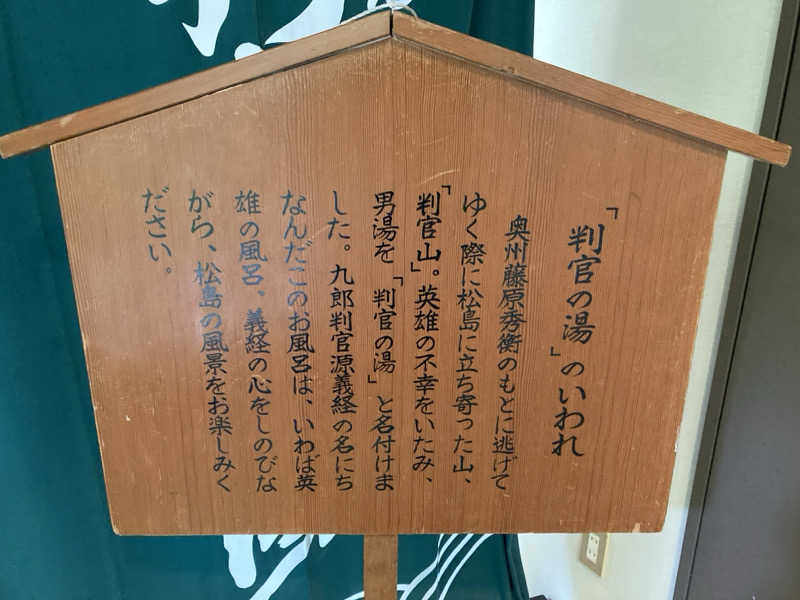 「判官の湯」のいわれ
奥州藤原秀衡のもとに逃げて
ゆく際に松島に立ち寄った山、
「判官山」。英雄の不幸をいたみ、
男湯を「判官の湯」と名付けま
した。九郎判官源義経の名にち
なんだこのお風呂は、いわば英
雄の風呂、義経の心をしのびな
がら、松島の風景をお楽しみく
ださい。